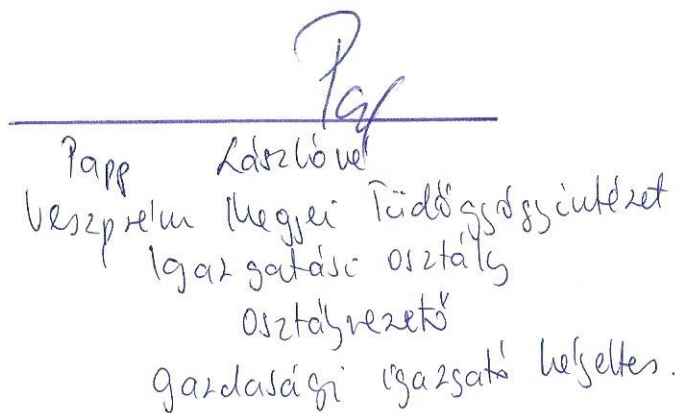 Pap
Papp Lászlóné
Veszprém Megyei Tüdőgyógyintézet
Igazgatási osztály
Osztályvezető
gazdasági igazgató helyettes.